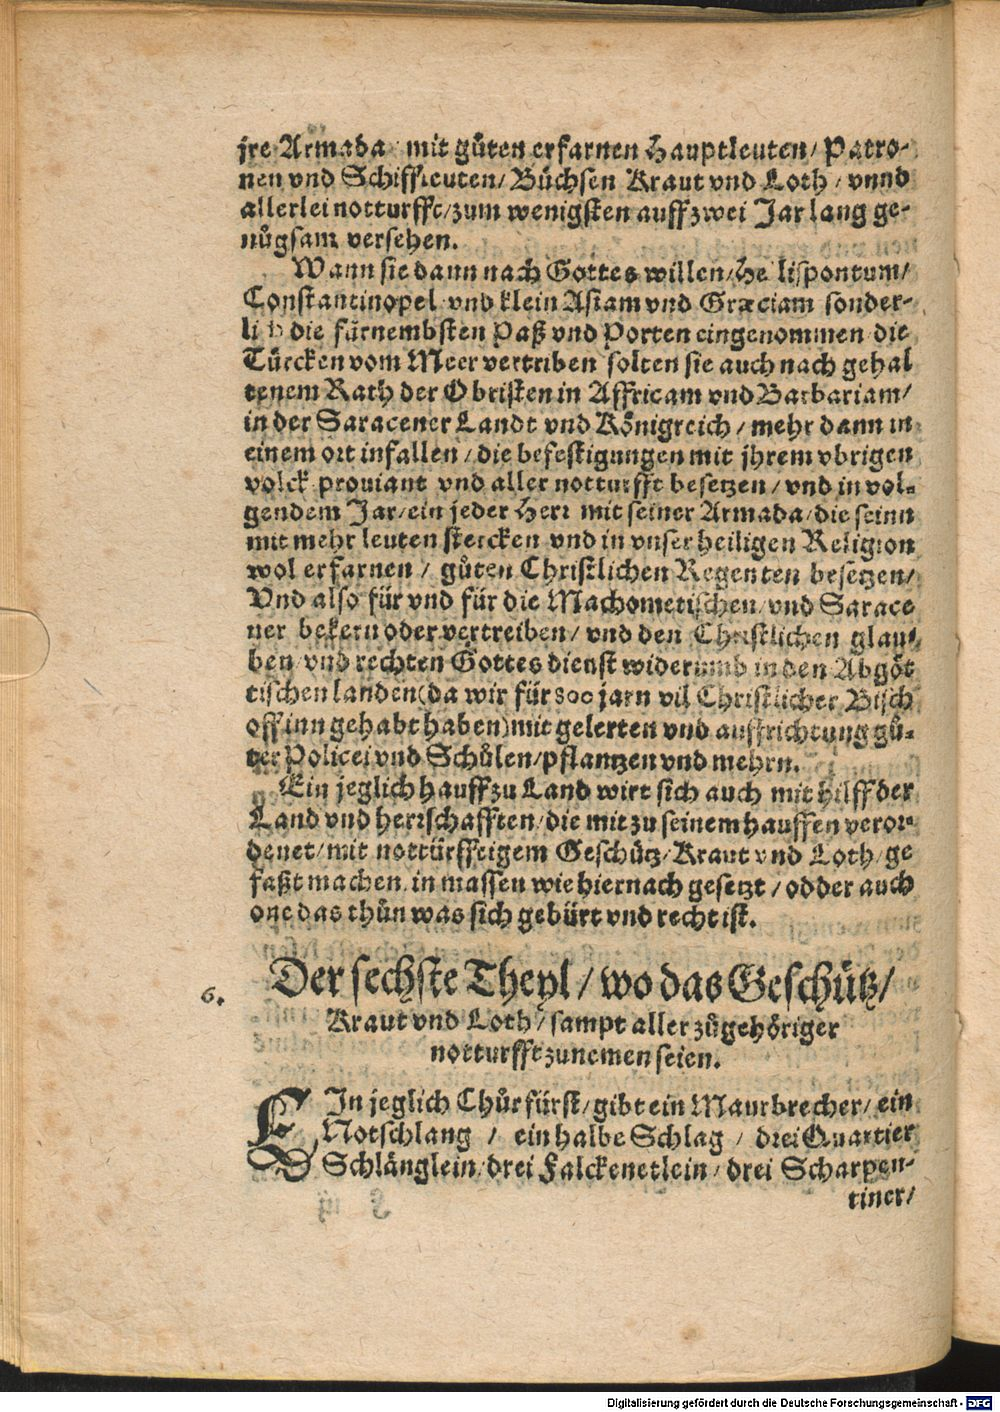 jre Armada mit gůten erfarnen Hauptleuten / Patro-
nen vnd Schiffleuten / Büchsen Kraut vnd Loth / vnnd
allerlei notturfft / zum wenigsten auff zwei Jar lang ge-
nůgsam versehen.
Wann sie dann nach Gottes willen / Hellispontum /
Constantinopel vnd klein Asiam vnd Græciam sonder-
lich die fürnembsten Paß vnd Porten eingenommen die
Türcken vom Meer vertriben solten sie auch nach gehal
tenem Rath der Obristen in Affricam vnd Barbariam /
in der Saracener Landt vnd Königreich / mehr dann in
einem ort infallen / die befestigungen mit jhrem vbrigen
volck prouiant vnd aller notturfft besetzen / vnd in vol-
gendem Jar / ein jeder Herr mit seiner Armada / die seinn
mit mehr leuten stercken vnd in vnser heiligen Religion
wol erfarnen / gůten Christlichen Regenten besetzen /
Vnd also für vnd für die Machometischen / vnd Sarace
ner bekern oder vertreiben / vnd den Christlichen glau-
ben / vnd rechten Gottes dienst widerumb in den Abgöt
tischen landen (da wir für 800 jarn vil Christlicher Bisch
off inn gehabt haben) mit gelerten vnd auffrichtung gů-
ter Policei vnd Schůlen / pflantzen vnd mehrn.
Ein jeglich hauff zu Land wirt sich auch mit hilff der
Land vnd herrschafften / die mit zu seinem hauffen veror-
denet / mit nottürfftigem Geschütz / Kraut vnd Loth / ge
faßt machen. in massen wie hiernach gesetzt / odder auch
one das thůn was sich gebürt vnd recht ist.
6. Der sechste Theyl / wo das Geschütz /
Kraut vnd Loth / sampt aller zůgehöriger
notturfft zunemen seien.
EIn jeglich Chůrfürst / gibt ein Maurbrecher / ein
Notschlang / ein halbe Schlag / drei Quartier
Schlänglein / drei Falckenetlein / drei Scharpen-
tiner /
Digitalisierung gefördert durch die Deutsche Forschungsgemeinschaft - DFG